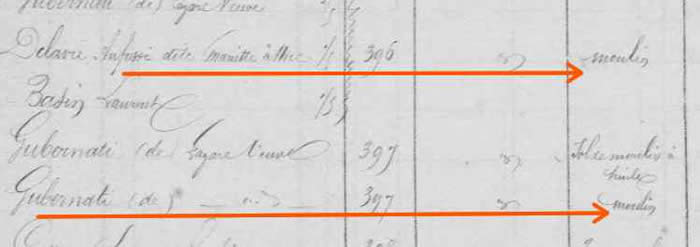 Gubernati (de) Lazare Veuve 1/5
Delavie 1/5 396 " moulin
Basin Laurent 1/5
Gubernati (de) Lazare Veuve 397 " Sol de moulin à
huile
Gubernati (de) — " — 397 " moulin